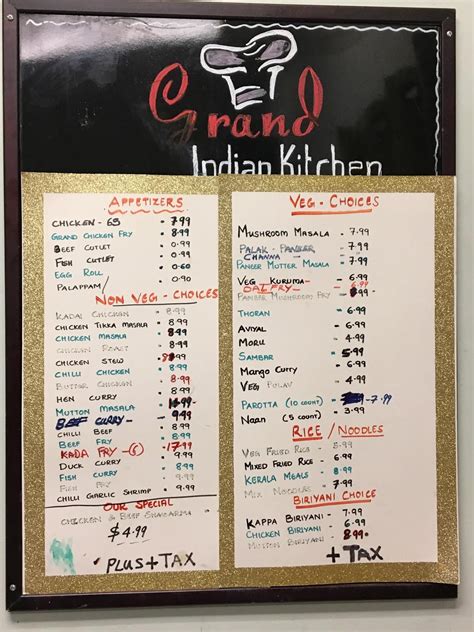 Grand
Indian Kitchen
APPETIZERS
CHICKEN - 65 - 7.99
GRAND CHICKEN FRY - 8.99
BEEF CUTLET - 0.99
FISH CUTLET - 0.99
EGG ROLL - 0.60
PALAPPAM - 0.90
NON VEG - CHOICES
KADAI CHICKEN - 8.99
CHICKEN TIKKA MASALA - 8.99
CHICKEN MASALA - 8.99
CHICKEN ROAST - 8.99
CHICKEN STEW
CHILLI CHICKEN - 8.99
BUTTER CHICKEN - 8.99
HEN CURRY - 8.99
MUTTON MASALA
BEEF CURRY - 9.99
CHILLI BEEF - 8.99
BEEF FRY - 8.99
KADA FRY - (5)
DUCK CURRY - 8.99
FISH CURRY - 8.99
FISH FRY
CHILLI GARLIC SHRIMP - 8.99
OUR SPECIAL
CHICKEN & BEEF SHAWARMA
$4.99
PLUS + TAX
VEG - CHOICES
MUSHROOM MASALA - 7.99
PALAK - PANEER - 7.99
CHANNA
PANEER MUTTER MASALA - 7.99
VEG KURUMA - 6.99
DAL FRY - 6.99
PANEER MUSHROOM FRY
THORAN - 6.99
AVIYAL - 6.99
MORU - 4.99
SAMBAR
MANGO CURRY - 6.99
VEG PULAV - 4.99
PAROTTA (10 COUNT) - 7.99
NAAN (5 COUNT) - 3.99
RICE / NOODLES
VEG FRIED RICE - 6.99
MIXED FRIED RICE - 6.99
KERALA MEALS - 8.99
MIX NOODLES
BIRIYANI CHOICE
KAPPA BIRIYANI - 6.99
CHICKEN BIRIYANI - 6.99
MUTTON BIRIYANI - 8.99
+ TAX